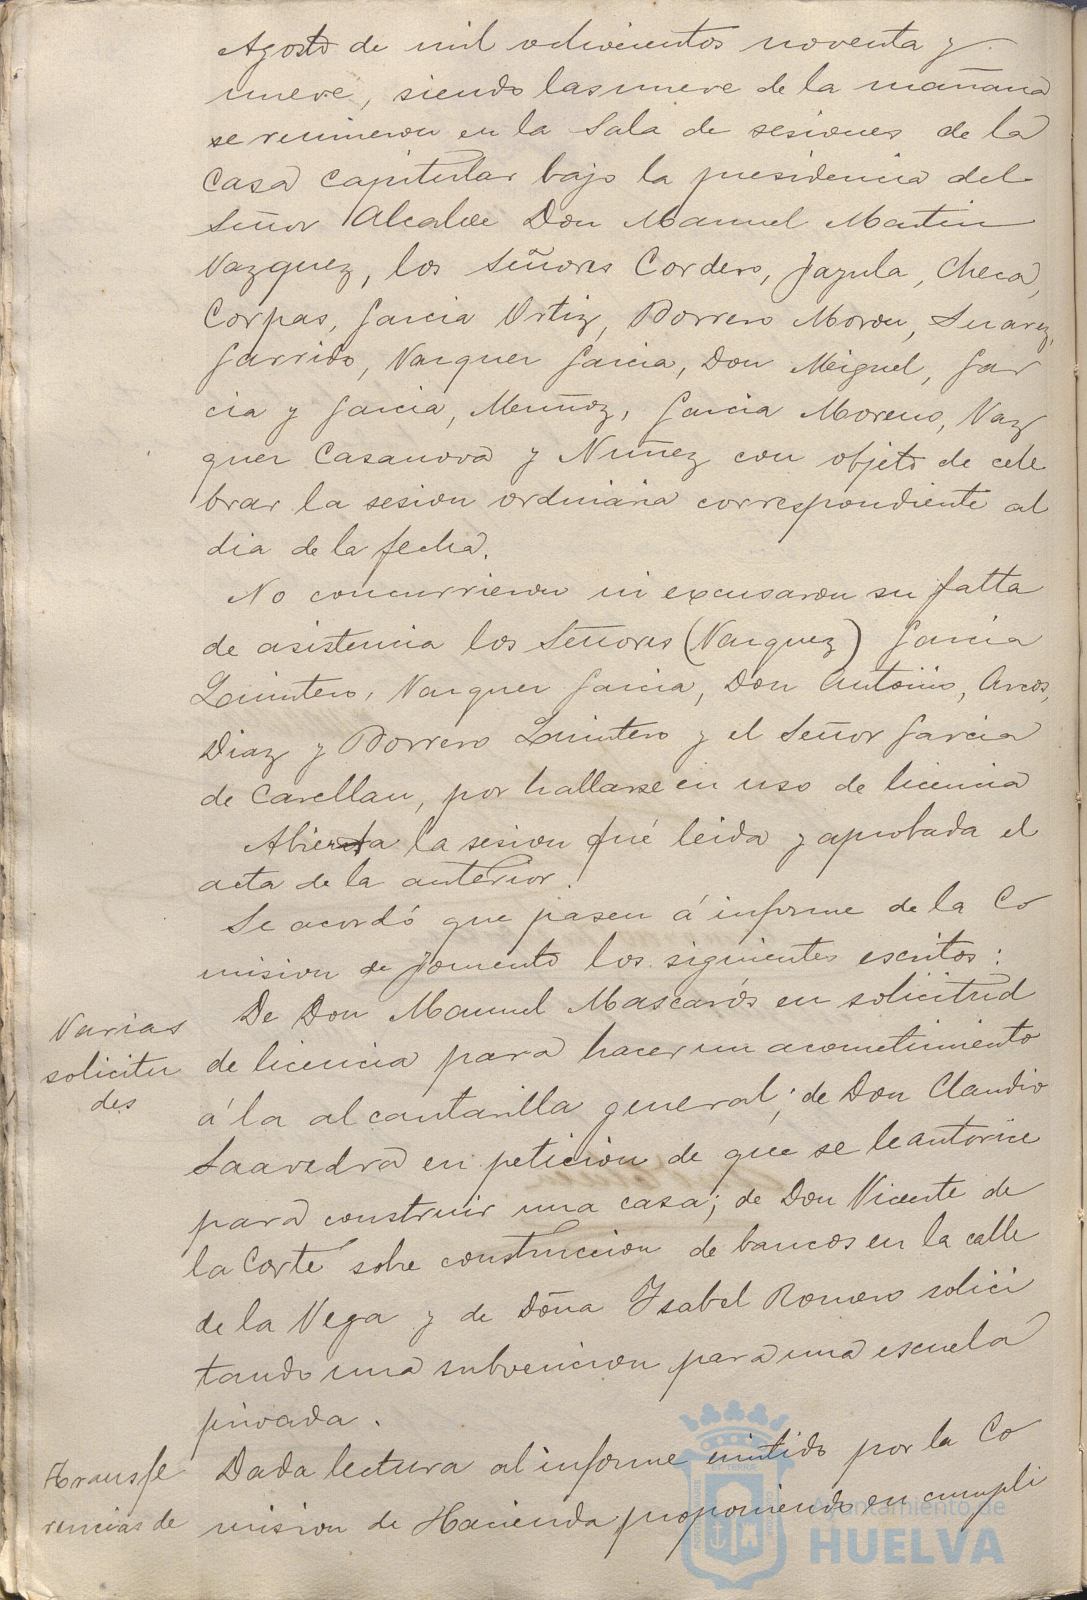 Agosto de mil ochocientos noventa y
nueve, siendo las nueve de la mañana
se reunieron en la Sala de sesiones de la
Casa Capitular bajo la presidencia del
Señor Alcalde Don Manuel Martin
Vazquez, los Señores Cordero, Jazula, Checa,
Corpas, Garcia Ortiz, Borrero Moron, Suarez,
Garrido, Vazquez Garcia, Don Miguel, Gar
cia y Garcia, Muñoz, Garcia Moreno, Vaz
quez Casanova y Nuñez con objeto de cele
brar la sesion ordinaria correspondiente al
dia de la fecha.
No concurrieron ni excusaron su falta
de asistencia los Señores (Vazquez) Garcia
Quintero, Vazquez Garcia, Don Antonio, Arcos,
Diaz y Borrero Quintero y el Señor Garcia
de Carellan, por hallarse en uso de licencia
Abierta la sesion fué leida y aprobada el
acta de la anterior.
Se acordó que pasen á informe de la Co
mision de Fomento los siguientes escritos:
Varias
solicitu
des
De Don Manuel Mascarós en solicitud
de licencia para hacer un acometimiento
á la alcantarilla general; de Don Claudio
Saavedra en peticion de que se le autorice
para construir una casa; de Don Vicente de
la Corte sobre construccion de bancos en la calle
de la Vega y de Doña Ysabel Romero solici
tando una subvencion para una escuela
privada.
Transfe
rencias de
Dada lectura al informe emitido por la Co
mision de Hacienda proponiendo en cumpli
Ayuntamiento de
HUELVA